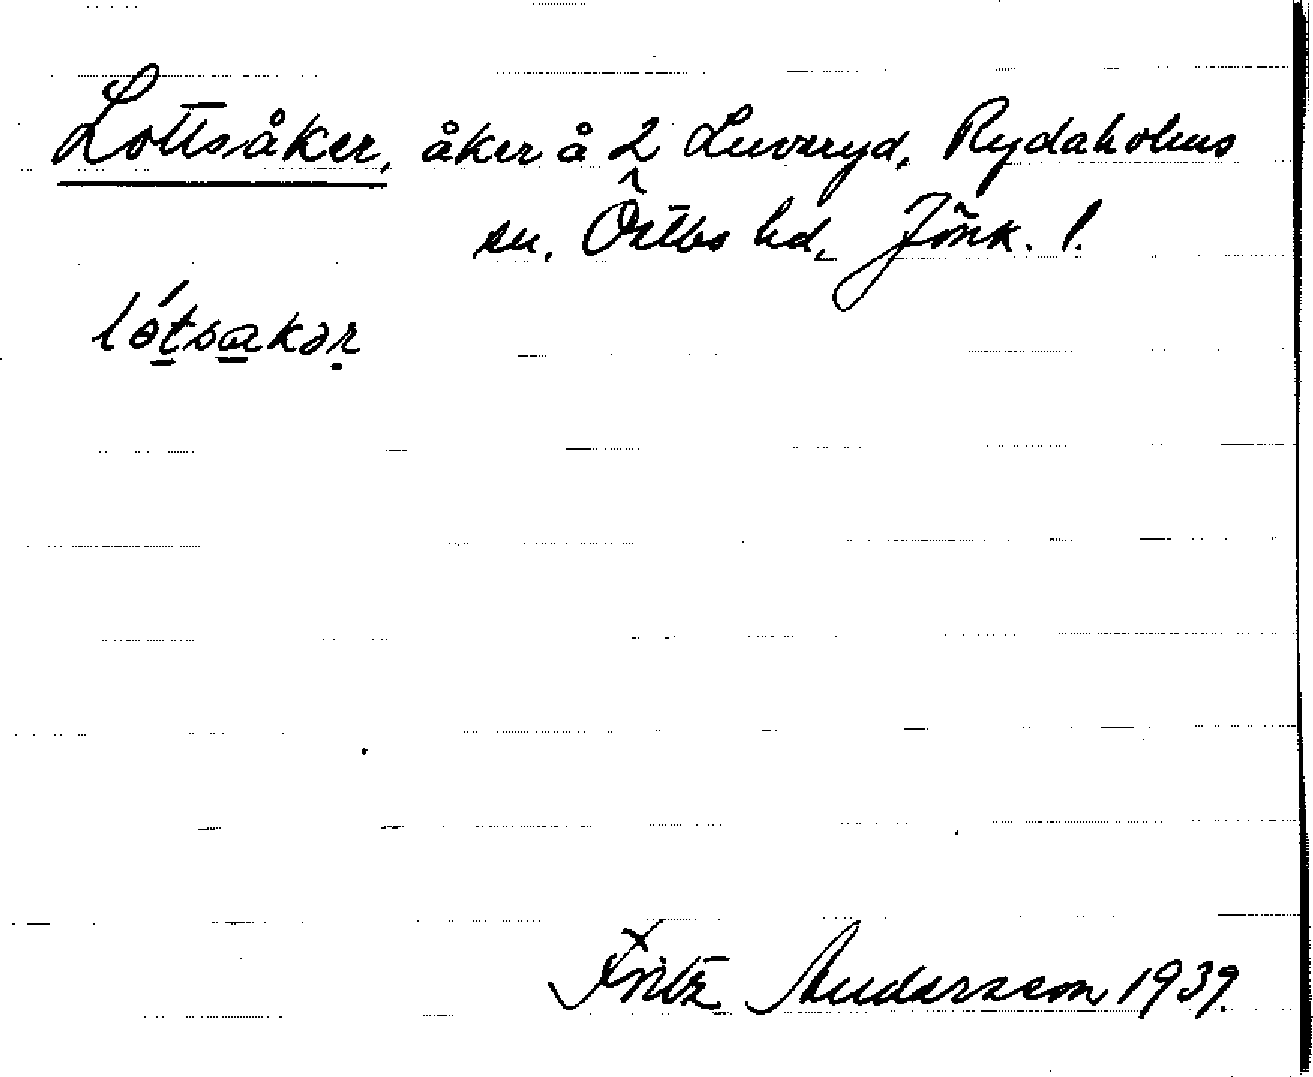 Lottsåker, åker å 2 Luvaryd, Rydaholms
sn. Östbo hd, Jönk. l.
lótsakər
Fritz Andersson 1939.